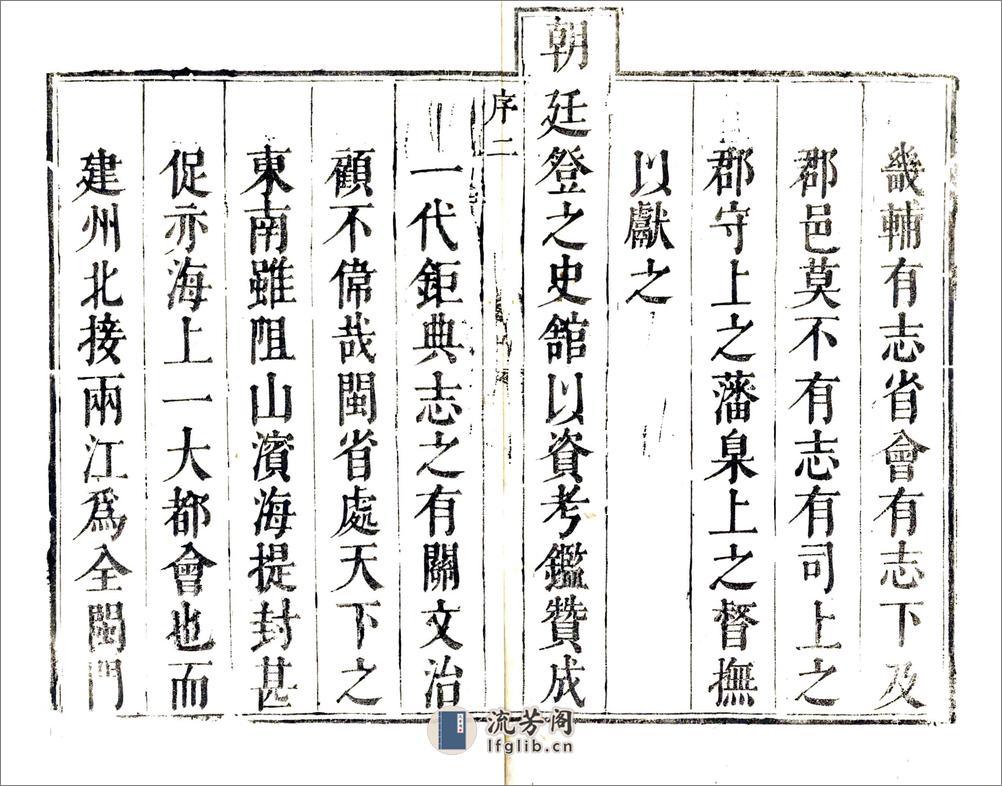 畿輔有志省會有志下及
郡邑莫不有志有司上之
郡守上之藩臬上之督撫
以獻之
朝廷登之史舘以資考鑑贊成
序二
一代鉅典志之有關文治
顧不偉哉閩省處天下之
東南雖阻山濱海提封甚
促亦海上一大都會也而
建州北接兩江爲全閩門
流芳阁
lfglib.cn